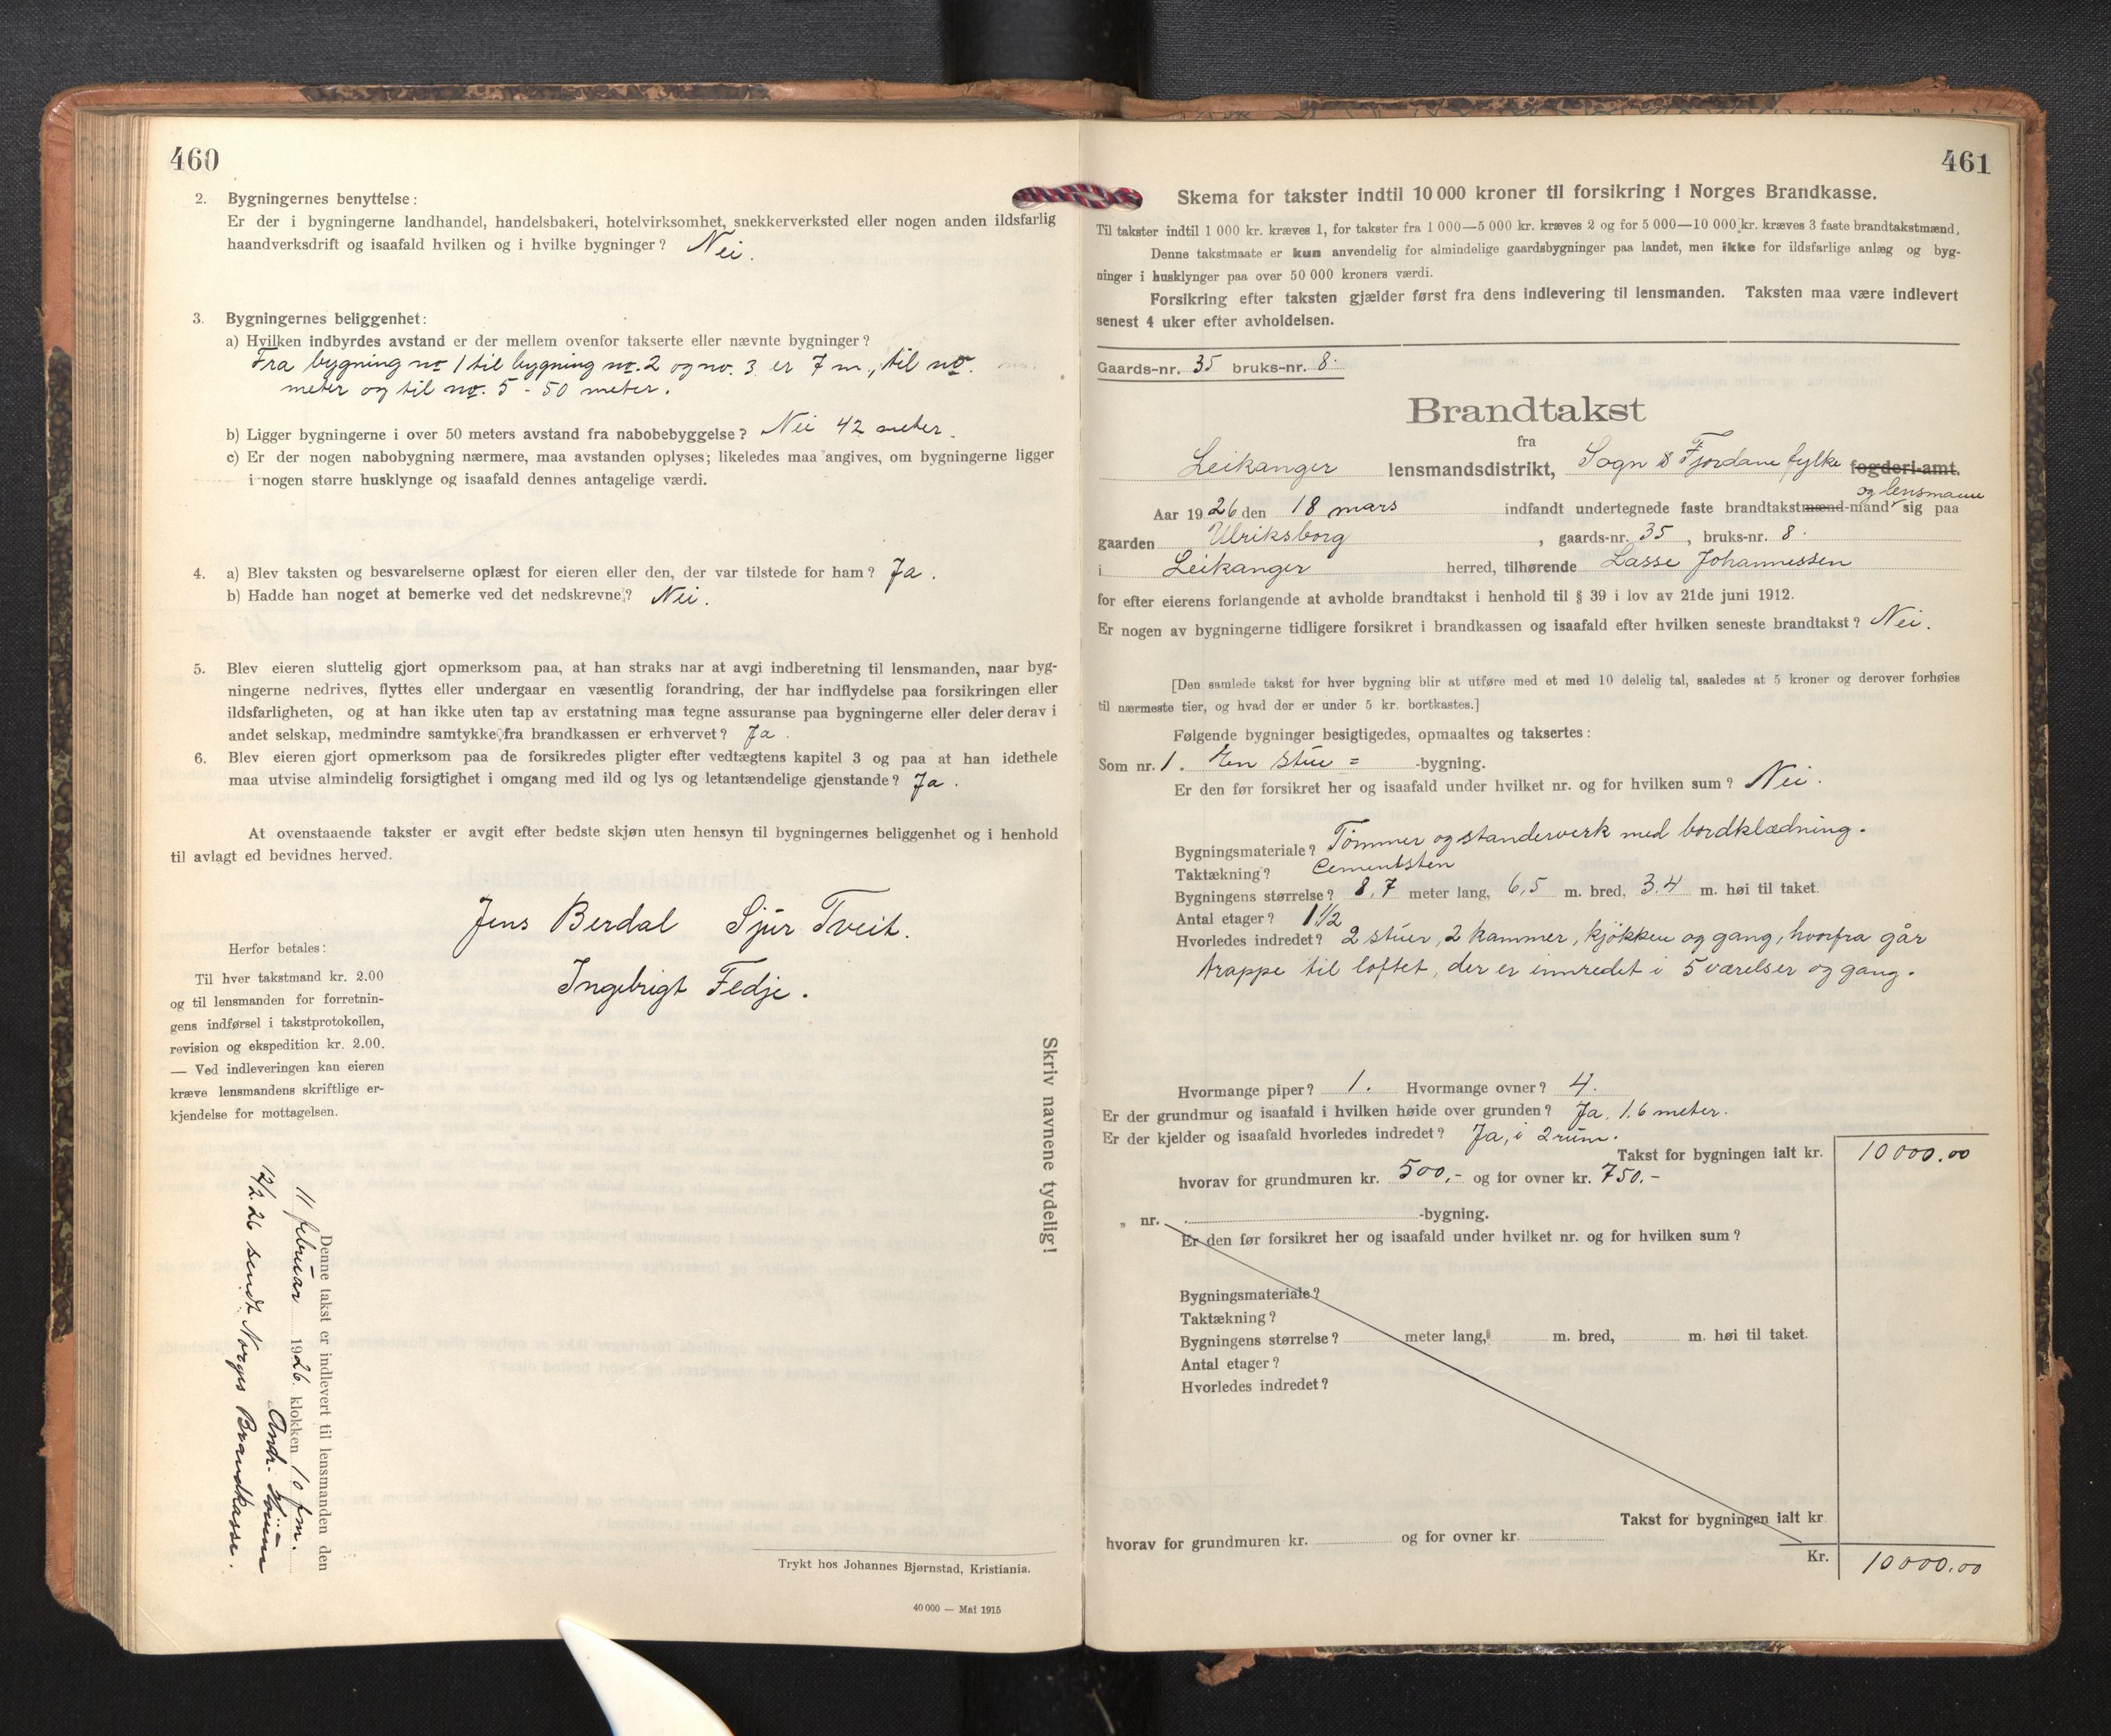 460
2. Bygningernes benyttelse:
Er der i bygningerne landhandel, handelsbakeri, hotelvirksomhet, snekkerverksted eller nogen anden ildsfarlig
haandverksdrift og isaafald hvilken og i hvilke bygninger? Nei.
3. Bygningernes beliggenhet:
a) Hvilken indbyrdes avstand er der mellem ovenfor takserte eller nævnte bygninger?
Fra bygning no 1 til bygning no. 2 og no. 3 er 7 m., til no.
meter og til no. 5 - 50 meter.
b) Ligger bygningerne i over 50 meters avstand fra nabobebyggelse? Nei 42 meter.
c) Er der nogen nabobygning nærmere, maa avstanden oplyses; likeledes maa angives, om bygningerne ligger
i nogen større husklynge og isaafald dennes antagelige værdi.
4. a) Blev taksten og besvarelserne oplæst for eieren eller den, der var tilstede for ham? Ja.
b) Hadde han noget at bemerke ved det nedskrevne? Nei.
5. Blev eieren sluttelig gjort opmerksom paa, at han straks har at avgi indberetning til lensmanden, naar byg-
ningerne nedrives, flyttes eller undergaar en væsentlig forandring, der har indflydelse paa forsikringen eller
ildsfarligheten, og at han ikke uten tap av erstatning maa tegne assuranse paa bygningerne eller deler derav i
andet selskap, medmindre samtykke fra brandkassen er erhvervet? Ja.
6. Blev eieren gjort opmerksom paa de forsikredes pligter efter vedtægtens kapitel 3 og paa at han idethele
maa utvise almindelig forsigtighet i omgang med ild og lys og letantændelige gjenstande? Ja.
At ovenstaaende takster er avgit efter bedste skjøn uten hensyn til bygningernes beliggenhet og i henhold
til avlagt ed bevidnes herved.
Jens Berdal Sjur Tveit.
Ingebrigt Fedje.
Herfor betales:
Til hver takstmand kr. 2.00
og til lensmanden for forretnin-
gens indførsel i takstprotokollen,
revision og ekspedition kr. 2.00.
— Ved indleveringen kan eieren
kræve lensmandens skriftlige er-
kjendelse for mottagelsen.
Skriv navnene tydelig!
Denne takst er indlevert til lensmanden den
11 februar 1926. klokken 10 fm.
Andr.
12/2. 26 sendt Norges Brandkasse.
Trykt hos Johannes Bjørnstad, Kristiania.
40 000 — Mai 1915
461
Skema for takster indtil 10 000 kroner til forsikring i Norges Brandkasse.
Til takster indtil 1 000 kr. kræves 1, for takster fra 1 000—5 000 kr. kræves 2 og for 5 000—10 000 kr. kræves 3 faste brandtakstmænd.
Denne takstmaate er kun anvendelig for almindelige gaardsbygninger paa landet, men ikke for ildsfarlige anlæg og byg-
ninger i husklynger paa over 50 000 kroners værdi.
Forsikring efter taksten gjælder først fra dens indlevering til lensmanden. Taksten maa være indlevert
senest 4 uker efter avholdelsen.
Gaards-nr. 35 bruks-nr. 8.
Brandtakst
fra
Leikanger lensmandsdistrikt, Sogn & Fjordane fylke fogderi-amt.
og lensmann
Aar 1926 den 18 mars indfandt undertegnede faste brandtakstmænd-mand sig paa
gaarden Ulriksborg, gaards-nr. 35, bruks-nr. 8.
i Leikanger herred, tilhørende Lasse Johannessen
for efter eierens forlangende at avholde brandtakst i henhold til § 39 i lov av 21de juni 1912.
Er nogen av bygningerne tidligere forsikret i brandkassen og isaafald efter hvilken seneste brandtakst? Nei.
[Den samlede takst for hver bygning blir at utføre med et med 10 delelig tal, saaledes at 5 kroner og derover forhøies
til nærmeste tier, og hvad der er under 5 kr. bortkastes.]
Følgende bygninger besigtigedes, opmaaltes og taksertes:
Som nr. 1. En stue = -bygning.
Er den før forsikret her og isaafald under hvilket nr. og for hvilken sum? Nei.
Bygningsmateriale? Tømmer og standerverk med bordklædning.
Taktækning? Cementsten
Bygningens størrelse? 8,7 meter lang, 6,5 m. bred, 3.4 m. høi til taket.
Antal etager? 1 1/2
Hvorledes indredet? 2 stuer, 2 kammer, kjøkken og gang, hvorfra går
trappe til loftet, der er innredet i 5 værelser og gang.
Hvormange piper? 1. Hvormange ovner? 4.
Er der grundmur og isaafald i hvilken høide over grunden? Ja, 1.6 meter.
Er der kjelder og isaafald hvorledes indredet? Ja, i 2 rum.
Takst for bygningen ialt kr. 10000.00
hvorav for grundmuren kr. 500,- og for ovner kr. 750.-
„ nr. -bygning.
Er den før forsikret her og isaafald under hvilket nr. og for hvilken sum?
Bygningsmateriale?
Taktækning?
Bygningens størrelse? meter lang, m. bred, m. høi til taket.
Antal etager?
Hvorledes indredet?
Takst for bygningen ialt kr.
hvorav for grundmuren kr. og for ovner kr.
Kr. 10000.00